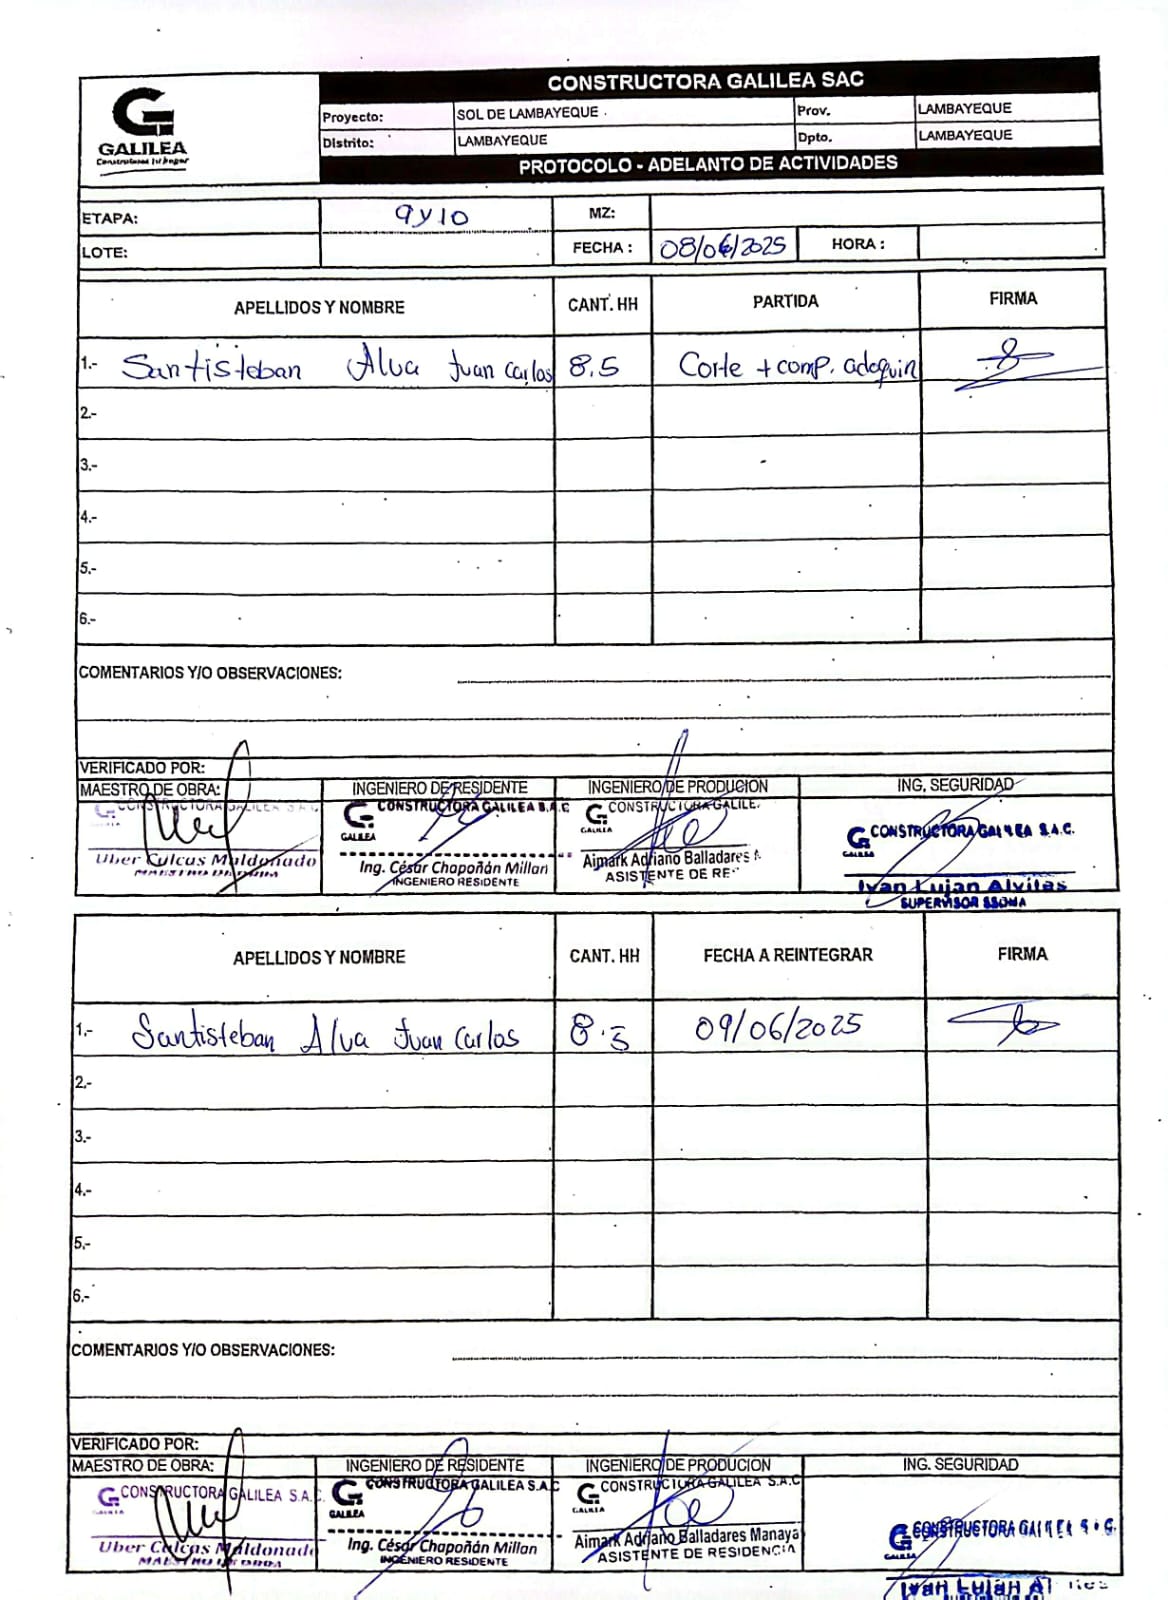 CONSTRUCTORA GALILEA SAC
GALILEA
Construimos tu hogar
Proyecto: SOL DE LAMBAYEQUE Prov. LAMBAYEQUE
Distrito: LAMBAYEQUE Dpto. LAMBAYEQUE
PROTOCOLO - ADELANTO DE ACTIVIDADES
ETAPA: 9 y 10 MZ:
LOTE: FECHA : 08/06/2025 HORA :
APELLIDOS Y NOMBRE CANT. HH PARTIDA FIRMA
1.- Santisteban Alva Juan Carlos 8.5 Corte + comp. adoquin
2.-
3.-
4.-
5.-
6.-
COMENTARIOS Y/O OBSERVACIONES:
VERIFICADO POR:
MAESTRO DE OBRA: INGENIERO DE RESIDENTE INGENIERO DE PRODUCION ING, SEGURIDAD
CONSTRUCTORA GALILEA S.A.C. CONSTRUCTORA GALILEA S.A.C CONSTRUCTORA GALILE. CONSTRUCTORA GALILEA S.A.C.
GALILEA GALILEA GALILEA
Uber Culcas Maldonado Ing. César Chapoñán Millan Aimark Adriano Balladares Ivan Lujan Alvites
MAESTRO DE OBRA INGENIERO RESIDENTE ASISTENTE DE RE SUPERVISOR SSOMA
APELLIDOS Y NOMBRE CANT. HH FECHA A REINTEGRAR FIRMA
1.- Santisteban Alva Juan Carlos 8.5 09/06/2025
2.-
3.-
4.-
5.-
6.-
COMENTARIOS Y/O OBSERVACIONES:
VERIFICADO POR:
MAESTRO DE OBRA: INGENIERO DE RESIDENTE INGENIERO DE PRODUCION ING. SEGURIDAD
CONSTRUCTORA GALILEA S.A.C. CONSTRUCTORA GALILEA S.A.C CONSTRUCTORA GALILEA S.A.C CONSTRUCTORA GALILEA S.A.C.
GALILEA GALILEA GALILEA GALILEA
Uber Culcas Maldonado Ing. César Chapoñán Millan Aimark Adriano Balladares Manaya
MAESTRO DE OBRA INGENIERO RESIDENTE ASISTENTE DE RESIDENCIA
Ivan Lujan Al